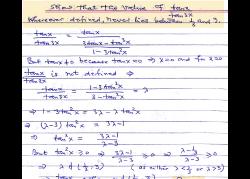 Show that the value of tanx/tan3x
Wherever defined, never lies between 1/3 and 3.
tanx/tan3x = tanx/(3tanx - tan³x
But tanx ≠ 0 because tanx=0 ⇒ x=0 and for x=0
tanx/tan3x is not defined ⇒
tanx/tan3x = (1-3tan²x)/(3-tan²x) = λ
⇒ 1-3tan²x = 3λ - λtan²x
⇒ (λ-3)tan²x = 3λ-1
⇒ tan²x = (3λ-1)/(λ-3)
But tan²x ≥ 0 ⇒ (3λ-1)/(λ-3) ≥ 0 ⇒ (λ-1/3)/(λ-3) ≥ 0
⇒ λ ∉ (1/3, 3) λ < 1/3 or λ > 3)